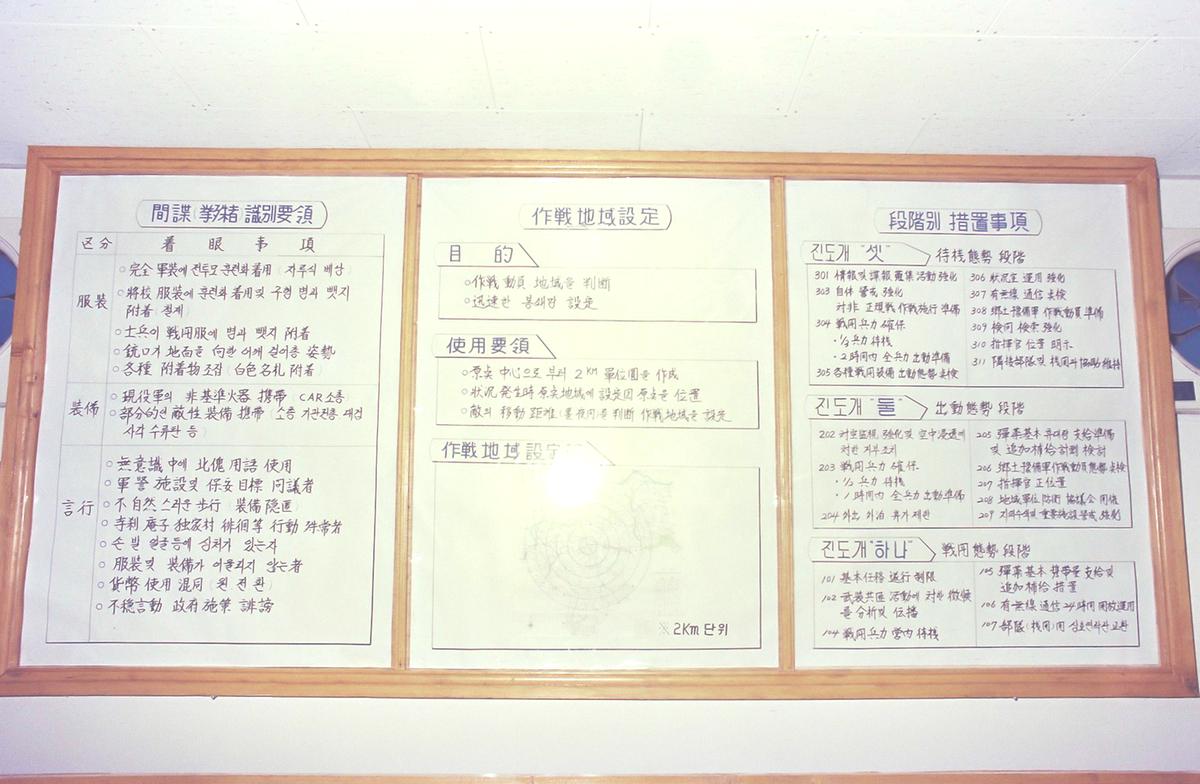 間諜 識別要領
区分 着眼事項
服装
○完全 軍装에 전투모 훈련화 着用 (자루식 배낭)
○将校 服装에 훈련화 着用 및 구형 병과 뺏지
附着
○士兵이 戦用服에 병과 뺏지 附着
○銃口가 地面을 向한 어깨 걸어총 姿勢
○各種 附着物 조잡 (白色名札 附着)
装備
○現役軍의 非基準火器 携帯 CAR소총
○部分的인 敵性装備 携帯 (소총 기관권총 대검
사각 수류탄 등)
言行
○無意識中에 北傀用語 使用
○軍警 施設 및 保安目標 問議者
○不自然스러운 步行 (装備隐匿)
○寺刹 庵子 独家村 徘徊等 行動 殊常者
○손 발 얼굴등에 상처가 있는자
○服装 및 装備가 어울리지 않는者
○貨幣 使用 混同 (원 전 환)
○不穏言動 政府施策 誹謗
作戦地域設定
目的
○作戦動員 地域을 判断
○迅速한 봉쇄망 設定
使用要領
○原点 中心으로 부터 2KM 單位圓을 作成
○状況 発生時 原点地域에 設定된 原点을 位置
○敵의 移動 距離 晝夜間을 判断 作戦地域을 設定
作戦地域設定
※ 2Km 단위
段階別 措置事項
진도개 "셋" 待機態勢 段階
301 情報 및 諜報 蒐集活動 強化
303 自体 警戒 強化
対非正規戦 作戦施行 準備
304 戦用兵力 確保
・⅓ 兵力 待機
・2時間内 全兵力 出動準備
305 各種戦用装備 出動態勢 点検
306 状況室 運用 強化
307 有無線 通信 点検
308 郷土豫備軍 作戦動員 準備
309 検問 検索 強化
310 指揮官 位置 明示
311 隣接部隊 및 機関과 協助 維持
진도개 "둘" 出動態勢 段階
202 対空監視 強化 및 空中浸透에
対한
203 戦用兵力 確保
・½ 兵力 待機
・1時間内 全兵力 出動準備
204 外出 外泊 휴가 제한
205 彈薬基本 휴대량 支給準備
및 追加補給計劃 検討
206 郷土豫備軍作戦動員態勢 点検
207 指揮官 正位置
208 地域單位 防衛 協議会 開催
209 및 重要施設 警戒 強化
진도개 "하나" 戦用態勢 段階
101 基本任務 遂行 制限
102 武装共匪 活動에 対한 徴候
를 分析 및 伝播
104 戦用兵力 営内 待機
105 彈薬基本 携帯量 支給 및
追加補給 措置
106 有無線 通信 24時間 開放運用
107 部隊(機関)間 상호연락관 교환